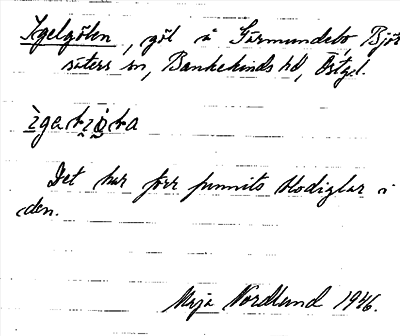 Igelgöln, göl i Gärmundebo, Björ
säters sn, Bankekinds hd, Östgl.
Det har förr funnits blodiglar i
den.
Maja Nordlund 1946.